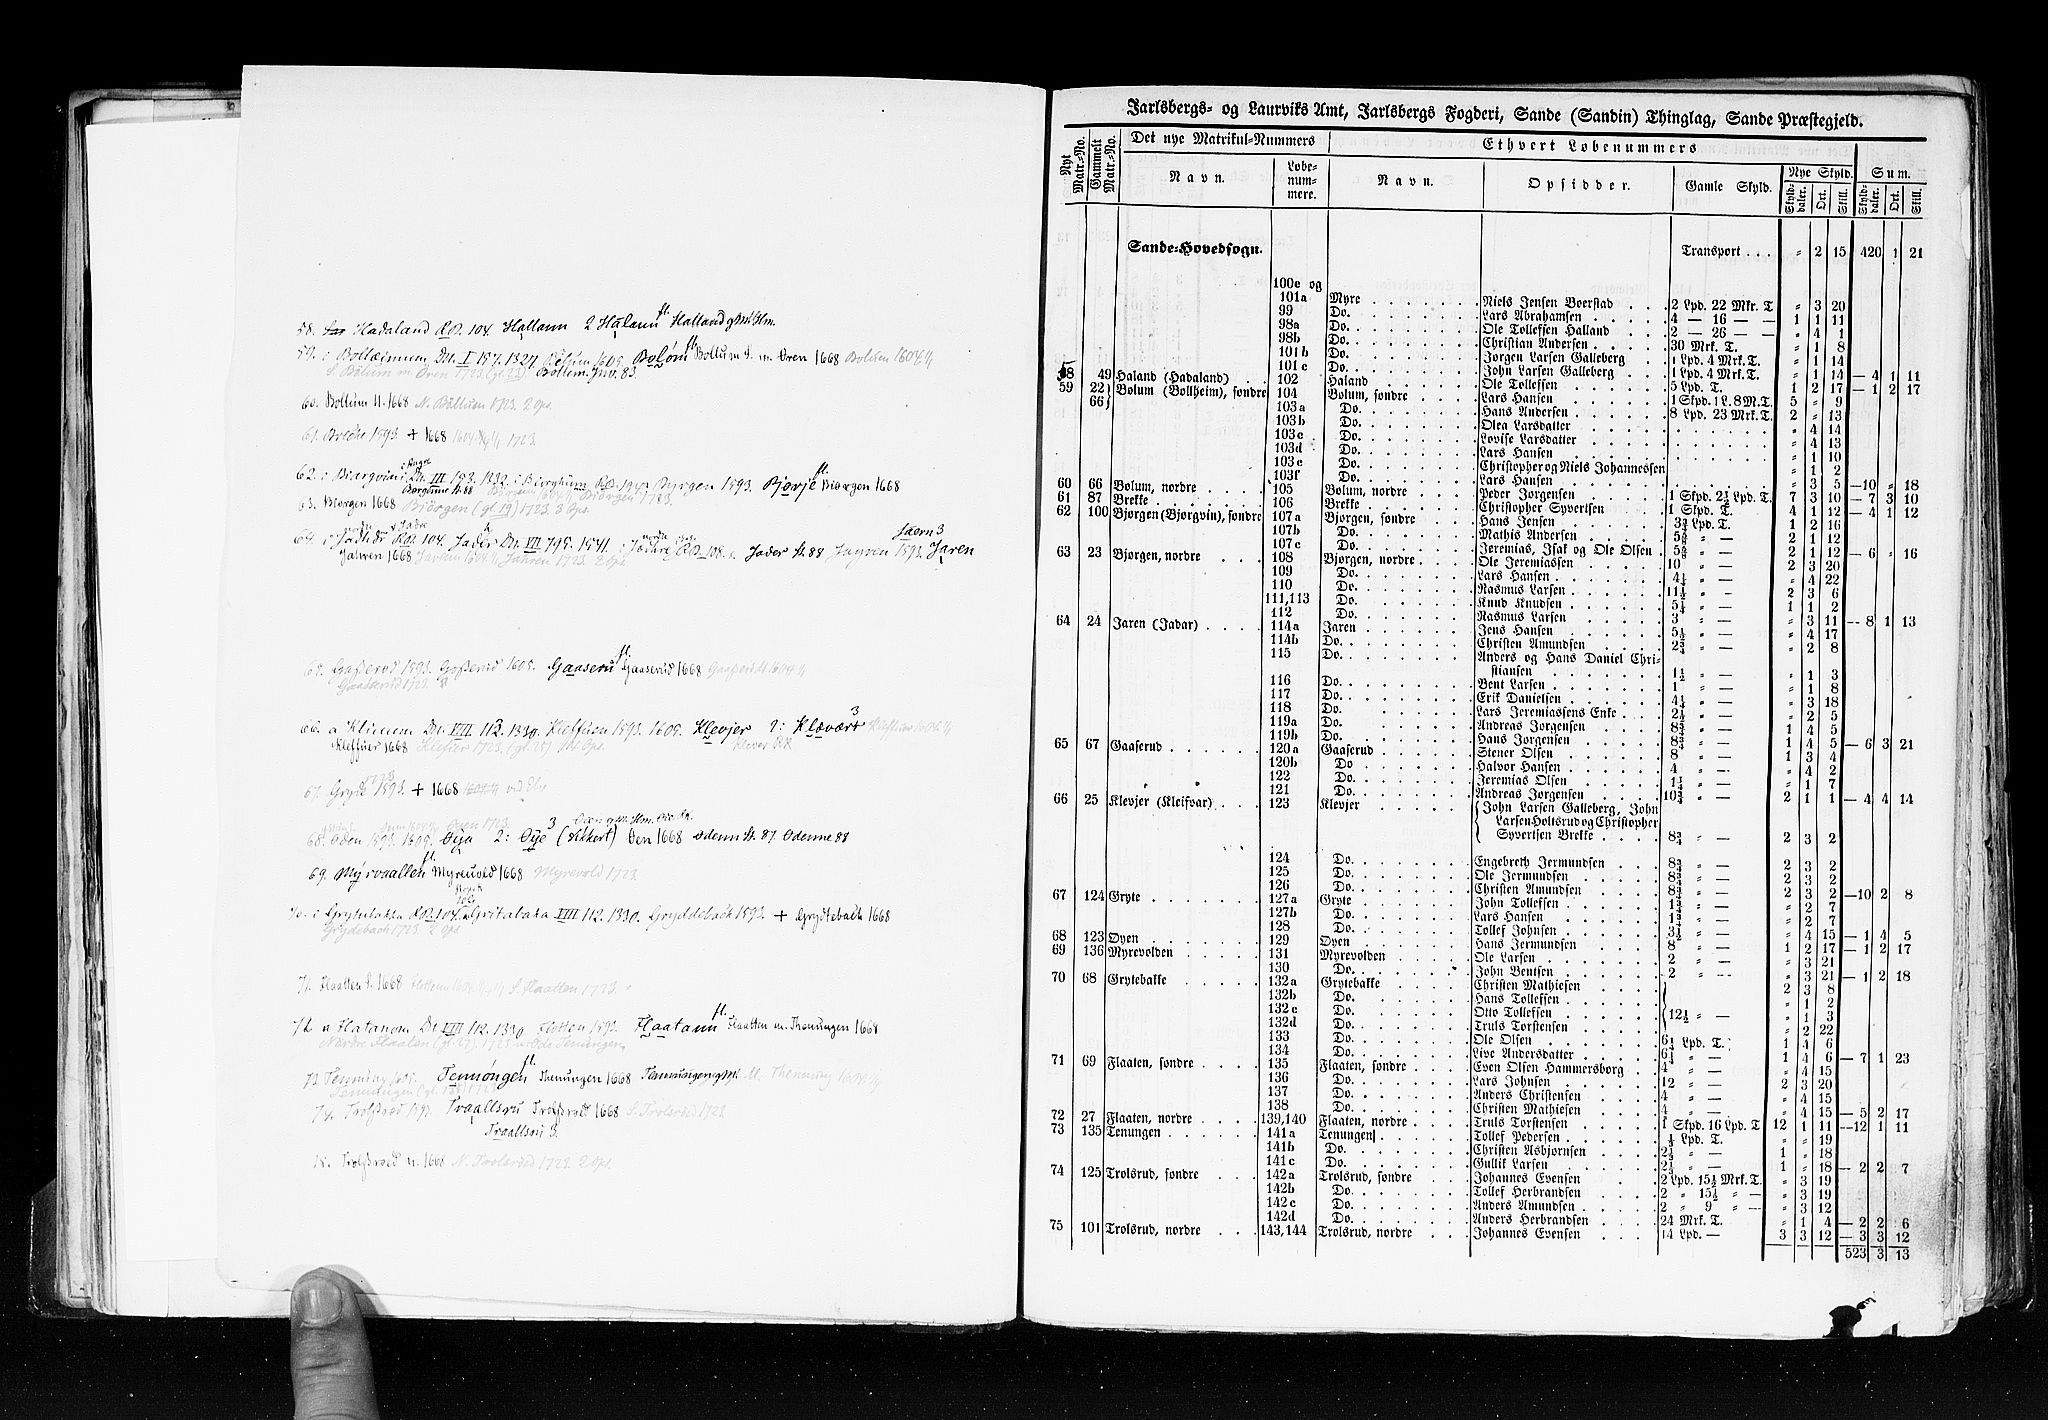 58. Hadaland RB. 104. Hallann 2 Halann fl. Halland gl. Mt. Hm.
59. i Bollæimum DN. I 157. 1327. Bolum 1605. Boløm fl. Bollum S. m. Øren 1668 Bolum 1604 1/1
S. Bollum m. Øren 1723. (gl 22) Bollem Jnv. 83.
60. Bollum N. 1668 N. Bollum 1723. 2 Gps.
61. Breche 1593. + 1668 1604 1/1 1723.
62. i Biargvin DN. III 193. 1332. i Biorghum RB. Byrgen 1593. Bjørje fl. Biørgen 1668
63. Biørgen 1668 Biørgen (gl 19) 1723. 3 Gps.
64. i Jadri RB. 104. Jader DN. VII 745. 1541. i Jadre RB. 108. Jader St. 88 Jayren 1593. Jaren
Jahren 1668 Jahren 1604 1/1 Jahren 1723. 2 Gps.
65. Gasserød 1593. Gosserud 1605. Gaaseru fl. Gaaserud 1668
Gaaserud 1723.
66. a Klimum DN. VIII 112. 1330. Kleffuen 1593. 1605. Klevjer 2: Klævær 3
Kleffuer 1668 Klefuer 1723. (gl 25) Klever RK
67. Grydt 1593. + 1668
68. Øden 1593. 1605. Øya 2: Øye 3 (sikkert) Øen 1668 Ødenn St. 87 Ødenne 88
69. Myrvaallen fl. Myreuold 1668 Myrevold 1723.
70. i Grytubakka RB. 104. Gritabaka VIII 112. 1330. Gryddebach 1593. + Grydtebach 1668
Grydebach 1723. 2 Gps
71. Flaatten S. 1668 S. Flaatten 1723
72. a Flatanom DN. VIII 112. 1330. Flotten 1593. Flaatann fl. Flaatten n. Thenungen 1668
Nordre Flaaten (gl. 27). 1723 m. Øde Tenungen
73. Tenning 1605. Tennongen fl. Thenungen 1668 Tennungen gl. Mt. Thennung 1604 1/1
Tenningen
74. Trolssrød 1593. Traallsru Trolssrød 1668 S. Trolsrød 1723
Traallsru 3.
75. Trolssrød n. 1668 N. Trolsrød 1723. 2 Gps.
Jarlsbergs- og Laurviks Amt, Jarlsbergs Fogderi, Sande (Sandin) Thinglag, Sande Præstegjeld.
Nyt Matr.-No. Gammelt Matr.-No. Det nye Matrikul-Nummers Ethvert Løbenummers
Navn. Løbe-num-mere. Navn. Opsidder. Gamle Skyld. Nye Skyld. Sum.
Skyld-daler. Ort. Skill. Skyld-daler. Ort. Skill.
Sande-Hovedsogn. Transport . . . " 2 15 420 1 21
100e og
101a Myre Niels Jensen Boerstad 2 Lpd. 22 Mkr. T. " 3 20
99 Do. Lars Abrahamsen 4 — 16 — — 1 1 11
98a Do. Ole Tollefsen Halland 2 — 26 — — " 4 1
98b Do. Christian Andersen 30 Mrk. T. " 1 8
101b Do. Jørgen Larsen Galleberg 1 Lpd. 4 Mrk. T. " 1 14
101c Do. John Larsen Galleberg 1 Lpd. 4 Mrk. T. " 1 14 — 4 1 11
58 49 Haland (Hadaland) 102 Haland Ole Tollefsen 5 Lpd. T. 1 2 17 — 1 2 17
59 22 Bolum (Bollheim), søndre 104 Bolum, søndre Lars Hansen 1 Skpd. 1 L. 8 M. T. 5 " 9
66 103a Do. Hans Andersen 8 Lpd. 23 Mrk. T. 2 " 13
103b Do. Olea Larsdatter " 4 14
103c Do. Lovise Larsdatter " 4 13
103d Do. Lars Hansen " 1 10
103e Do. Christopher og Niels Johannessen " 1 2
103f Do. Lars Hansen " 3 5 — 10 " 18
60 66 Bolum, nordre 105 Bolum, nordre Peder Jørgensen 1 Skpd. 2½ Lpd. T. 7 3 10 — 7 3 10
61 87 Brekke 106 Brekke Christopher Syvertsen 1 Skpd. T. 4 1 12 — 4 1 12
62 100 Bjørgen (Bjørgvin), søndre 107a Bjørgen, søndre Hans Jensen 3¾ Lpd. T. 1 2 16
107b Do. Mathis Andersen 2 1 12
107c Do. Jeremias, Isak og Ole Olsen 2 1 12 — 6 " 16
63 23 Bjørgen, nordre 108 Bjørgen, nordre Ole Jeremiassen 10 " — 2 3 20
109 Do. Lars Hansen 4¼ " — " 4 22
110 Do. Rasmus Larsen 11½ " — 2 3 6
111,113 Do. Knud Knudsen 5¼ " — 1 1 2
112 Do. Rasmus Larsen 3 " — " 3 11 — 8 1 13
64 24 Jaren (Jadar) 114a Jaren Jens Hansen " 4 17
114b Do. Christen Amundsen 2¾ " — " 2 8
115 Do. Anders og Hans Daniel Chri-
stiansen 1½ " — " 1 3
116 Do. Bent Larsen 1 " — " 1 8
117 Do. Erik Danielsen 4¼ " — " 3 18
118 Do. Lars Jeremiassens Enke " 2 5
119a Do. Andreas Jørgensen 8¾ " — 1 4 5
119b Do. Hans Jørgensen 8¾ " — 1 4 5 — 6 3 21
65 67 Gaaserud 120a Gaaserud Stener Olsen 8 " — 1 3 4
120b Do Halvor Hansen 4 " — " 4 2
122 Do. Jeremias Olsen " 1 7
121 Do. Andreas Jørgensen 10¾ " — 2 1 1 — 4 4 14
66 25 Klevjer (Kleifvar) 123 Klevjer John Larsen Galleberg, John
Larsen Holtsrud og Christopher
Syvertsen Brekke 8¾ " — 2 3 2
124 Do. Engebreth Jermundsen 8¾ " — 2 3 2
125 Do. Ole Jermundsen 8¾ " — 2 3 2
126 Do. Christen Amundsen 8¾ " — 2 3 2 — 10 2 8
67 124 Gryte 127a Gryte John Tollefsen 1¾ " — " 2 7
127b Do. Lars Hansen 1¾ " — " 2 7
128 Do. Tollef Johnsen 3½ " — " 4 15 — 1 4 5
68 123 Øyen 129 Øyen Hans Jermundsen 8 " — 1 2 17 — 1 2 17
69 136 Myrevolden 131 Myrevolden Ole Larsen 2 " — " 3 21
130 Do. John Bentsen 2 " — " 3 21 — 1 2 18
70 68 Grytebakke 132a Grytebakke Christen Mathiesen 2 3 8
132b Do. Hans Tollefsen " 1 2
132c Do. Otto Tollefsen 12½ " — " 1 3
132d Do. Truls Torstensen " 2 22
133 Do. Ole Olsen 6¼ Lpd. T. 1 4 6
134 Do. Live Andersdatter 6¼ " — 1 4 6 — 7 1 23
71 69 Flaaten, søndre 135 Flaaten, søndre Even Olsen Hammersborg 4 " — " 4 15
136 Do. Lars Johnsen 12 " — 2 3 20
137 Do. Anders Christensen 4 " — " 4 15
138 Do. Christen Mathiesen 4 " — " 4 15 — 5 2 17
72 27 Flaaten, nordre 139,140 Flaaten, nordre Truls Torstensen 1 Skpd. 16 Lpd. T 12 1 11 — 12 1 11
73 135 Tenungen 141a Tenungen Tollef Pedersen Lpd. T. " " 19
141b Do. Christen Asbjørnsen 1 " 18
141c Do. Gullik Larsen 1 " 18 — 2 2 7
74 125 Trolsrud, søndre 142a Trolsrud, søndre Johannes Evensen 2 Lpd. 15½ Mrk. T. " 3 19
142b Do. Tollef Herbrandsen 2 " 15½ " — " 3 19
142c Do. Anders Amundsen 2 " 9 " — " 3 12
142d Do. Anders Herbrandsen 24 Mrk. T. " 1 4 — 2 2 6
75 101 Trolsrud, nordre 143,144 Trolsrud, nordre Johannes Evensen 14 Lpd. — 3 3 12 — 3 3 12
523 3 13